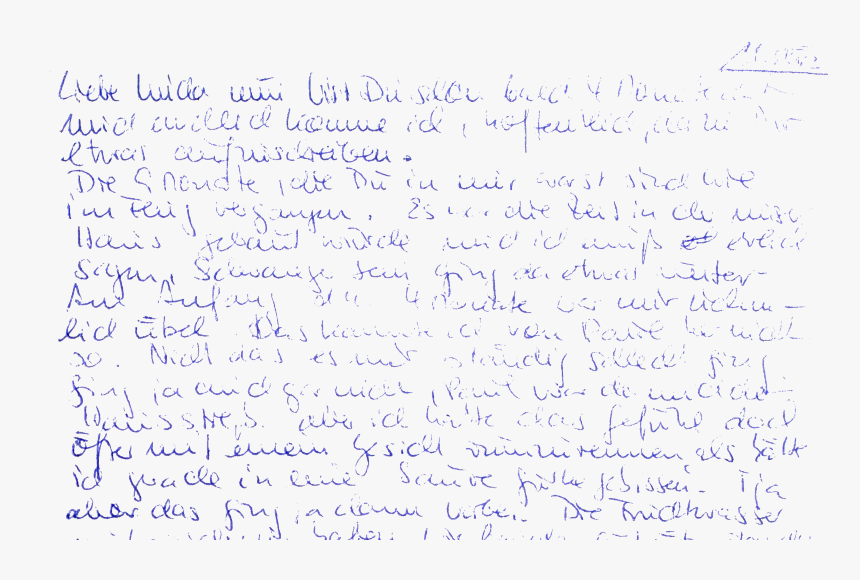 11. März
Liebe Linda nun bist Du schon bald 4 Monate alt
und endlich komme ich, hoffentlich, dazu Dir
etwas aufzuschreiben.
Die 9 Monate, die Du in mir warst sind wie
im Flug vergangen. Es war die Zeit in der unser
Haus gebaut wurde und ich muß ehrlich
sagen, Schwanger sein ging da etwas unter.
Am Anfang 4 Monate war mir ziem-
lich Übel. Das kannte ich von Paul her nicht
so. Nicht das es mir ständig schlecht ging
ging ja auch gar nicht, Paul war da und der
Hausstreß. aber ich hatte das gefühl doch
Öfter mit einem Gesicht rumzurennen als hätte
ich grade in eine Saure gurke gebissen. Tja
aber das ging ja dann vorbei. Die Fruchtwasser
haben